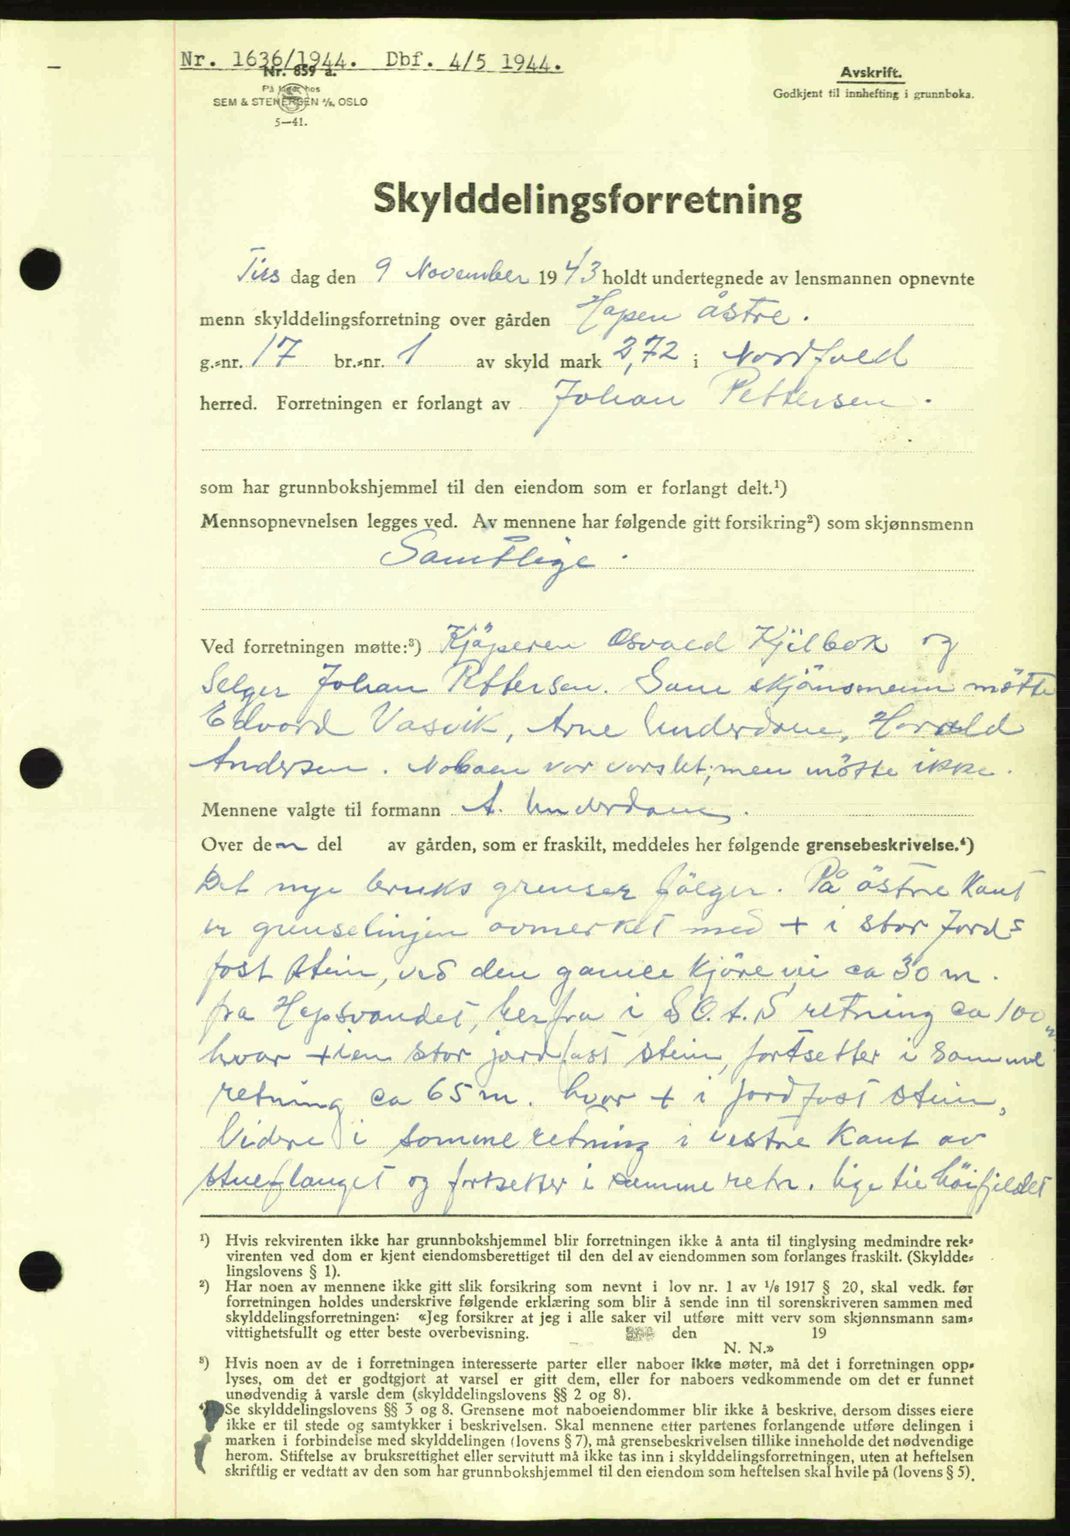 Nr. 1636/1944. Dbf. 4/5 1944.
Nr. 859 a.
På lager hos
SEM & STENERSEN A/S, OSLO
5—41.
Avskrift.
Godkjent til innhefting i grunnboka.
Skylddelingsforretning
Tirs dag den 9 November 1943 holdt undertegnede av lensmannen opnevnte
menn skylddelingsforretning over gården Hopen östre.
g.-nr. 17 br.-nr. 1 av skyld mark 2,72 i Nordfold
herred. Forretningen er forlangt av Johan Pettersen.
som har grunnbokshjemmel til den eiendom som er forlangt delt.¹)
Mennsopnevnelsen legges ved. Av mennene har følgende gitt forsikring²) som skjønnsmenn
Samtlige.
Ved forretningen møtte:³) Kjöperen Osvald Kjilbok og
Selger Johan Pettersen. Som skjönsmenn mötte
Edvard Vasvik, Arne Underdane, Harald
Andersen. Naboen var varslet, men mötte ikke.
Mennene valgte til formann A. Underdane.
Over den del av gården, som er fraskilt, meddeles her følgende grensebeskrivelse.⁴)
Det nye bruks grenser fölger. På östre kant
er grenselinjen avmerket med + i stor jord-
fast stein, ved den gamle kjörevei ca 30 m.
fra Hopsvandet, herfra i SO.t.S retning ca 100 m
hvor + i en stor jordfast stein, fortsetter i samme
retning ca 65 m. hvor + i jordfast stein,
Videre i samme retning i vestre kant av
og fortsetter i samme retn. lige til höifjeldet
¹) Hvis rekvirenten ikke har grunnbokshjemmel blir forretningen ikke å anta til tinglysing medmindre rek-
virenten ved dom er kjent eiendomsberettiget til den del av eiendommen som forlanges fraskilt. (Skyldde-
lingslovens § 1).
²) Har noen av mennene ikke gitt slik forsikring som nevnt i lov nr. 1 av 1/6 1917 § 20, skal vedk. før
forretningen holdes underskrive følgende erklæring som blir å sende inn til sorenskriveren sammen med
skylddelingsforretningen: «Jeg forsikrer at jeg i alle saker vil utføre mitt verv som skjønnsmann sam-
vittighetsfullt og etter beste overbevisning. den 19
N. N.»
³) Hvis noen av de i forretningen interesserte parter eller naboer ikke møter, må det i forretningen opp-
lyses, om det er godtgjort at varsel er gitt dem, eller for naboers vedkommende om det er funnet
unødvendig å varsle dem (skylddelingslovens §§ 2 og 8).
Se skylddelingslovens §§ 3 og 8. Grensene mot naboeiendommer blir ikke å beskrive, dersom disses eiere
ikke er til stede og samtykker i beskrivelsen. Skal mennene etter partenes forlangende utføre delingen i
marken i forbindelse med skylddelingen (lovens § 7), må grensebeskrivelsen tillike inneholde det nødvendige
herom. Stiftelse av bruksrettighet eller servitutt må ikke tas inn i skylddelingsforretningen, uten at heftelsen
skriftlig er vedtatt av den som har grunnbokshjemmel til den eiendom som heftelsen skal hvile på (lovens § 5).